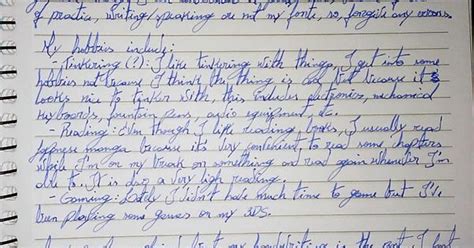 of practice, writing/speaking are not my forte, so, forgive any errors.
My hobbies include:
- Tinkering (?): I like tinkering with things, I get into some
hobbies not because I think the thing is cool but because it
looks nice to tinker with, this includes electronics, mechanical
keyboards, fountain pens, audio equipment, etc.
- Reading: Even though I like reading books, I usually read
japanese manga because it's very convenient to read some chapters
while I'm on my break on something and read again whenever I'm
able to. It is also a very light reading.
- Gaming: I didn't have much time to game but I'
been playing some games on my 3DS.